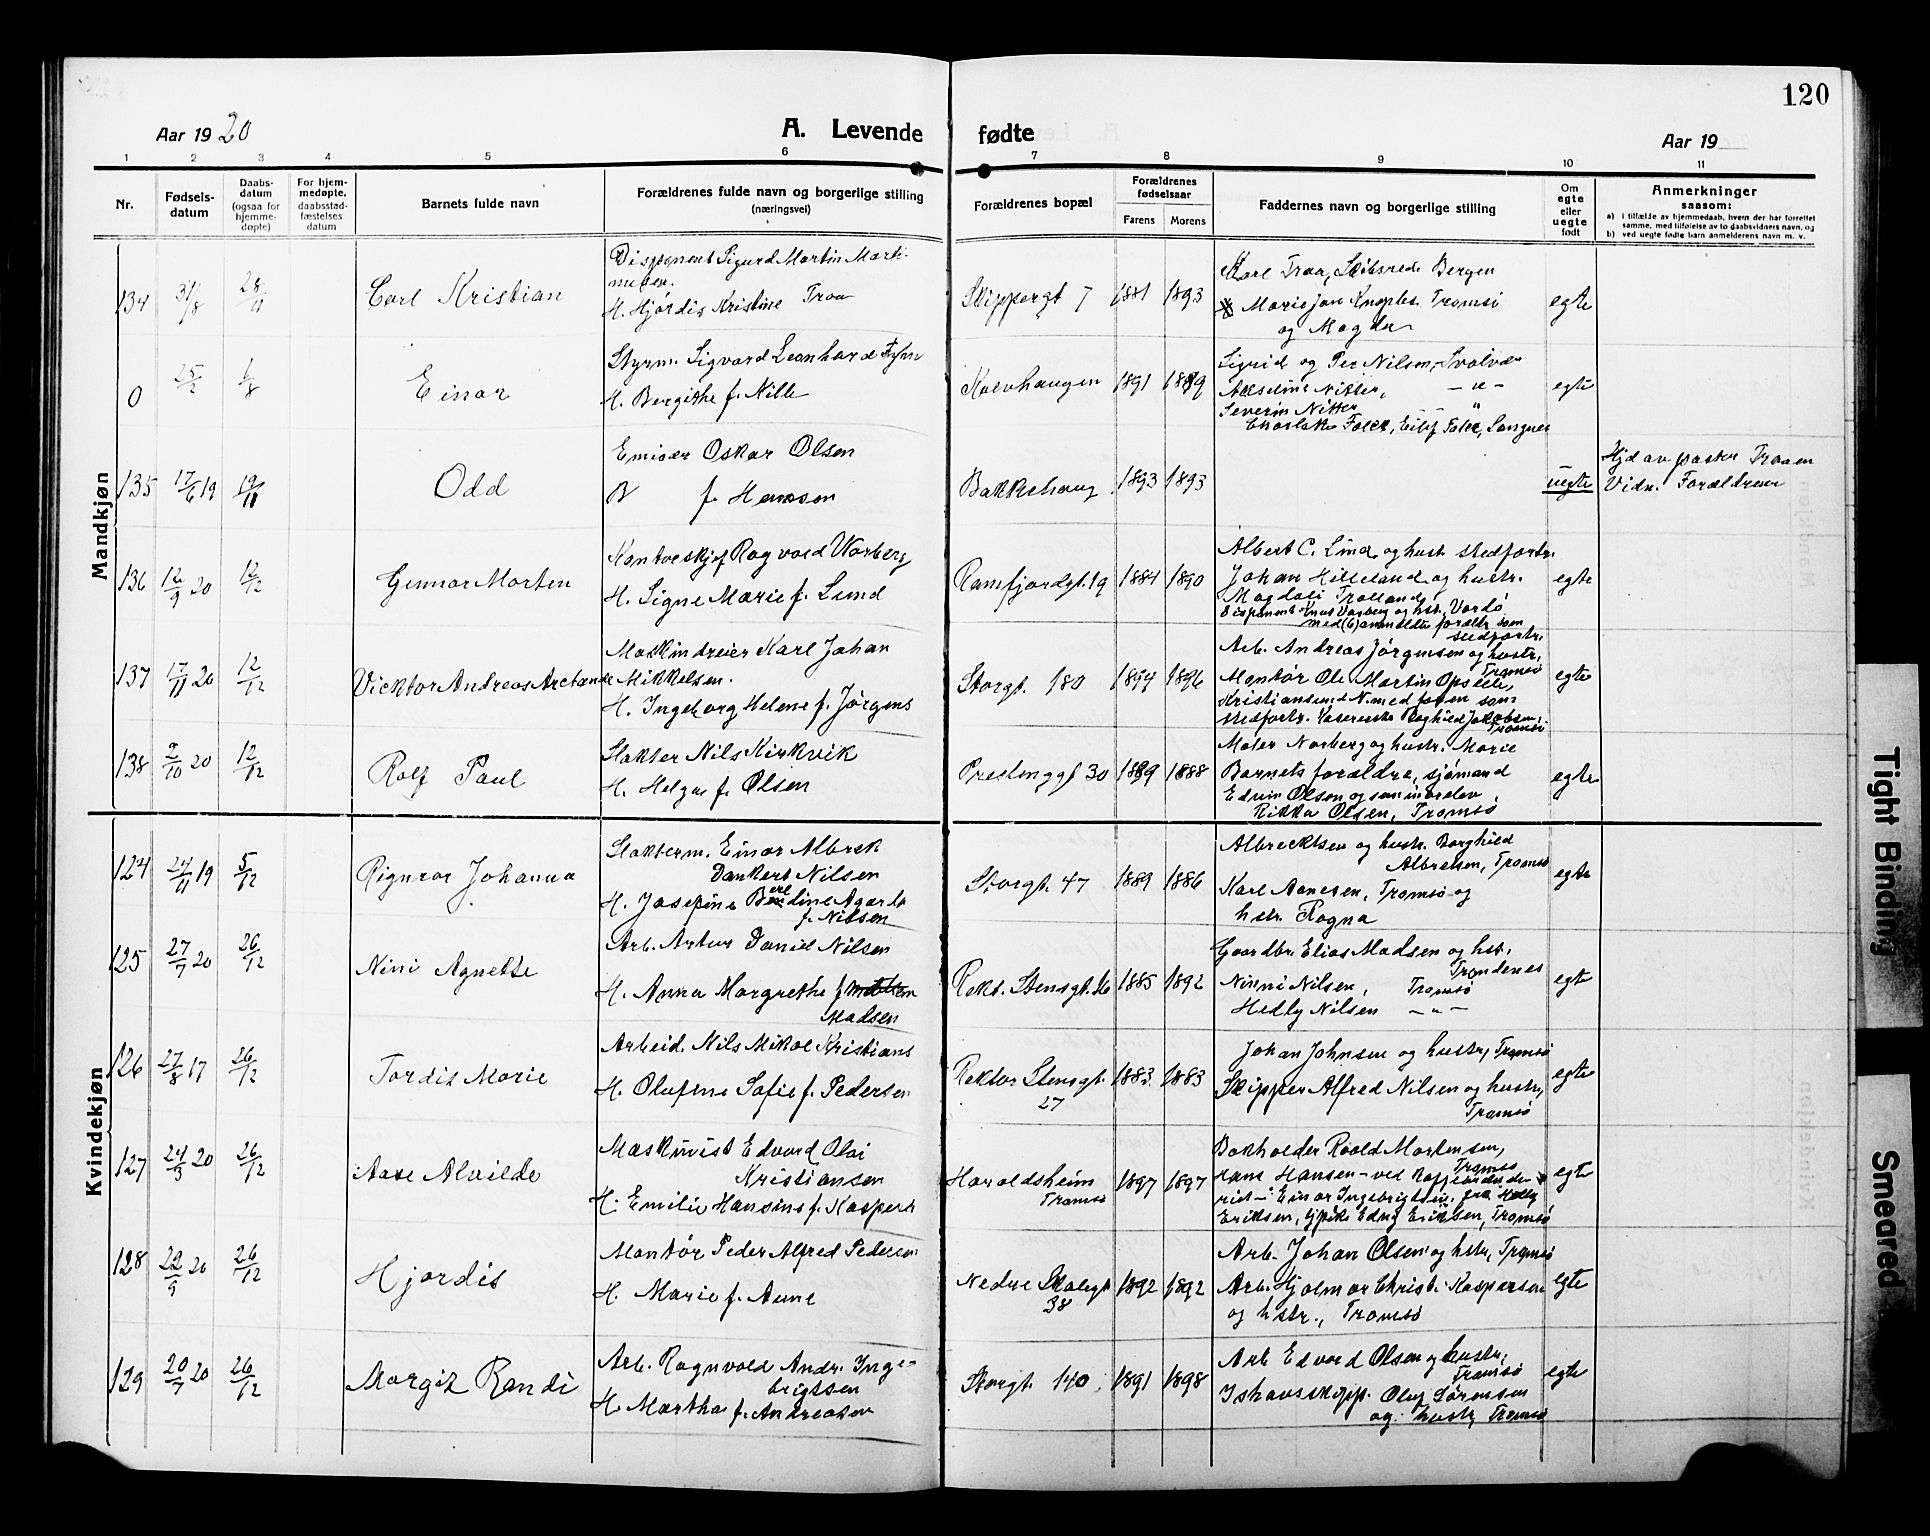 120
Aar 1920
A. Levende fødte
Aar 19
1 2 3 4 5 6 7 8 9 10 11
Nr.
Fødsels-
datum
Daabs-
datum
(ogsaa for
hjemme-
døpte)
For hjem-
medøpte,
daabsstad-
fæstelses
datum
Barnets fulde navn
Forældrenes fulde navn og borgerlige stilling
(næringsvei)
Forældrenes bopæl
Forældrenes
fødselsaar
Farens Morens
Faddernes navn og borgerlige stilling
Om
egte
eller
uegte
født
Anmerkninger
saasom:
a) i tilfælde av hjemmedaab, hvem der har forrettet
samme, med tilføielse av to daabsvidners navn, og
b) ved uegte født barn anmelderens navn m. v.
Mandkjøn
134 31/8 28/11 Carl Kristian
Disponent Sigurd Martin Marti-
nussen.
H. Hjørdis Kristine Traa
Skippergt 7 1881 1893
Karl Traa, Skibsred. Bergen
Marie Jan Knoples. Tromsø
og Magda
egte
0 25/2 1/8 Einar
Styrm. Sigvard Leonhard
H. Bergithe f.
1891 1889
Sigrid og Per Nilsen, Svolvær
Akseline Nitter, — " —
Severin Nitter — "
egte
135 17/6 19 19/11 Odd
Emisær Oskar Olsen
B f. Hansen
Bakkehaug 1893 1893
uegte
Hjd av pastor Traaen
Vidn. Forældrene
136 12/9 20 12/12 Gunnar Morten
Kontorskjef Ragvald Warberg
H. Signe Marie f. Lund
Ramfjordgt. 19 1884 1890
Albert C. Lind og hust. stedfortr.
Johan Hilleland og hustr.
Magdali
Disponent Knut Varberg og hst. Vardø
med (b) anmeldte foreldr som
stedfortr.
egte
137 17/11 20 12/12 Vicktor Andreas Arctande
Maskindreier Karl Johan
Mikkelsen.
H. Ingeborg Helene f. Jørgens
Storgt. 180 1894 1896
Arb. Andreas Jørgensen og hustr,
Tromsø
Montør Ole Martin
Kristiansund N. med faren som
stedfortr. Kasererske Raghild Jakobsen,
Tromsø.
egte
138 9/10 20 12/12 Rolf Paul
Slakter Nils Kirkvik
H. Helga f. Olsen
Prestenggt 30 1889 1888
Maler Norberg og hustr. Marie
Barnets forældre, sjømand
Edvin Olsen og seminarelev
Rikka Olsen, Tromsø
egte
Kvindekjøn
124 24/11 19 5/12 Rigmor Johanna
Slakterm. Einar Albrek
Dankert Nilsen
H. Josefine Berdine Agarta
f. Nilsen
Storgt. 47 1889 1886
Albrecktsen og hustr. Borghild
Albretsen, Tromsø
Karl Aanesen, Tromsø og
hstr. Ragna
egte
125 27/7 20 26/12 Nini Agnette
Arb. Artur Daniel Nilsen
H. Anna Margrethe f.
Madsen
Rekt. Stensgt. 1885 1892
Gaardbr. Elias Madsen og hst.
Trondenes
Ninni Nilsen, Tromsø
Hedly Nilsen — " —
egt
126 27/8 17 26/12 Tordis Marie
Arbeid. Nils Mikal Kristians
H. Olufine Sofie f. Pedersen
Rektor Stensgt.
27
1883 1883
Johan Johnsen og hustr, Tromsø
Skipper Alfred Nilsen og hustr,
Tromsø
egte
127 24/3 20 26/12 Aase Alvilde
Maskinist Edvard Olai
Kristiansen
H. Emilie Hansine f. Kaspers
Haroldsheim
Tromsø
1897 1897
Bokholder Roald Mortensen,
Tromsø
Hans Hansen - ved
Einar Ingebrigtsen,
Eriksen, frøken Edny Eriksen, Tromsø
egte
128 22/9 20 26/12 Hjørdis
Montør Peder Alfred Pedersen
H. Marie f. Aune
Nedre Skolegt
38
1892 1892
Arb. Johan Olsen og hstr, Tromsø
Arb. Hjalmar Christ. Kaspersen
og hstr., Tromsø
egte
129 20/7 20 26/12 Margit Randi
Arb. Ragnvald Andr. Inge-
brigtsen
H. Martha f. Andreasen
Storgt. 140 1891 1898
Arb. Edvard Olsen og hustr,
Tromsø
Ishavsskipp. Oluf Sørensen
og hustr, Tromsø
egte
Tight Binding
Smeared